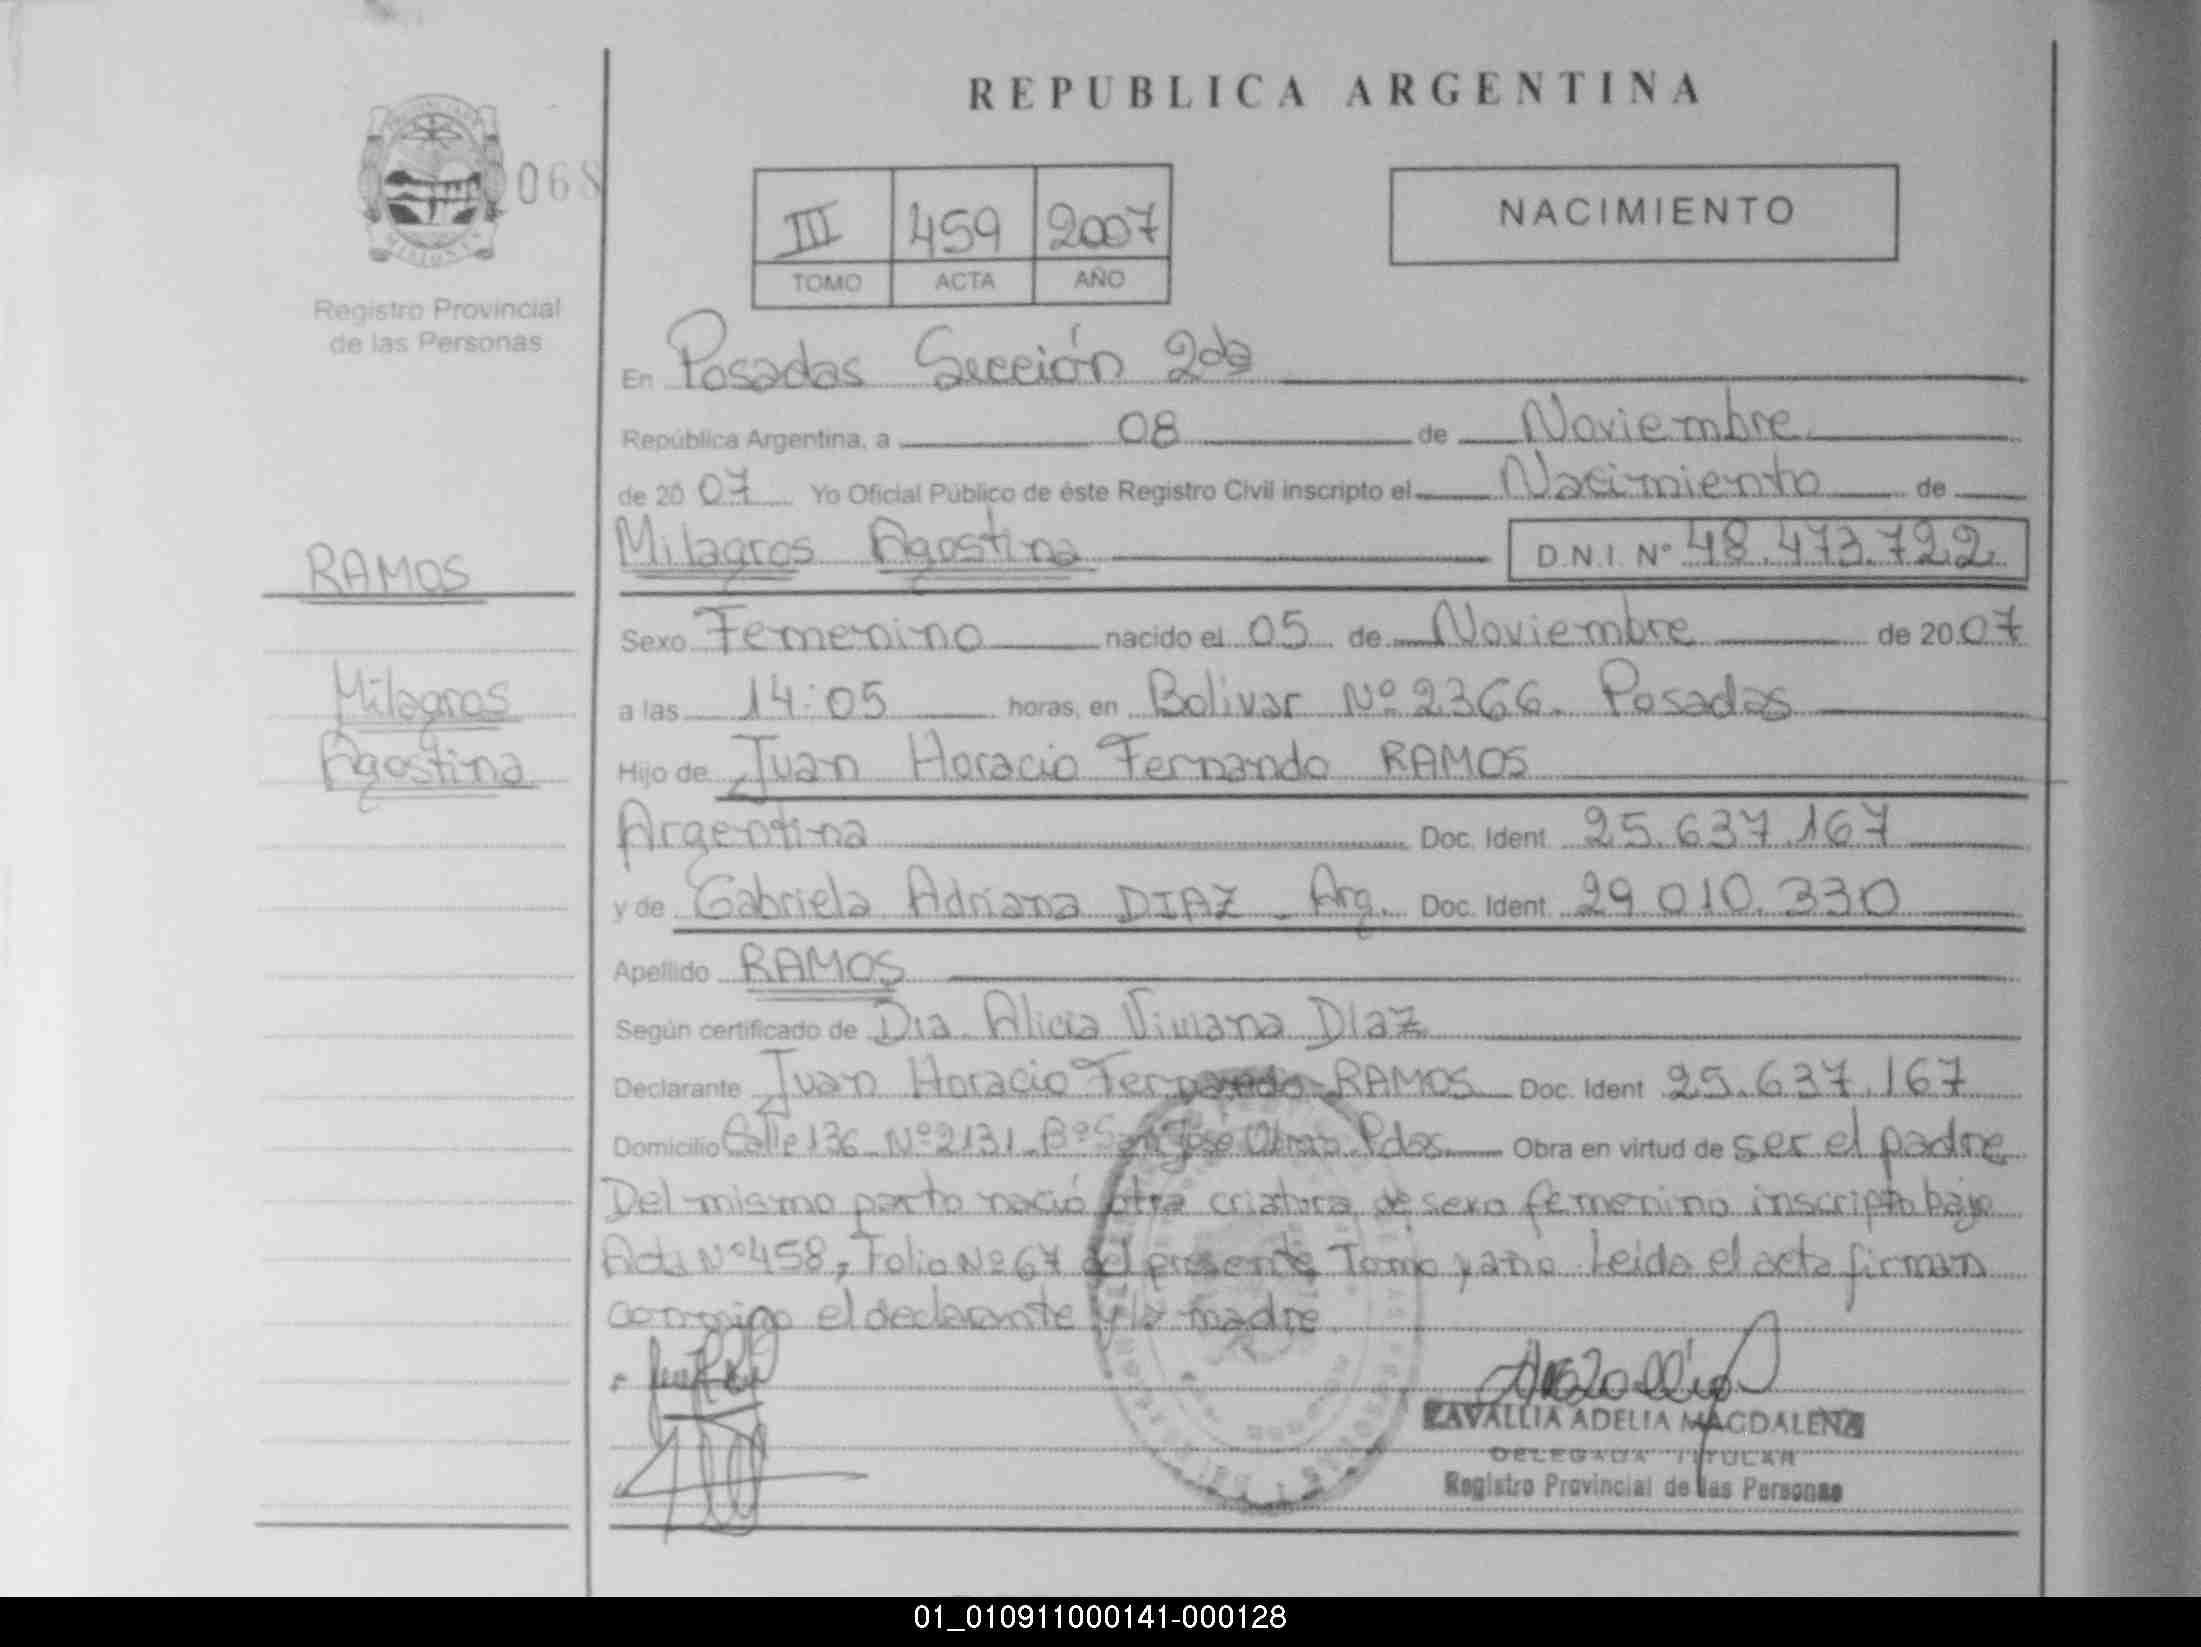 REPUBLICA ARGENTINA
068
Registro Provincial
de las Personas
III 459 2007
TOMO ACTA AÑO
NACIMIENTO
En Posadas Sección 2da
República Argentina, a 08 de Noviembre
de 2007 Yo Oficial Público de éste Registro Civil inscripto el Nacimiento de
Milagros Agostina D.N.I. Nº 48.473.722
RAMOS
Milagros
Agostina
Sexo Femenino nacido el 05 de Noviembre de 2007
a las 14:05 horas, en Bolivar Nº 2366. Posadas
Hijo de Juan Horacio Fernando RAMOS
Argentina Doc. Ident 25.637.167
y de Gabriela Adriana DIAZ - Arg. Doc. Ident 29.010.330
Apellido RAMOS
Según certificado de Dra. Alicia Viviana Diaz
Declarante Juan Horacio Fernando RAMOS Doc. Ident 25.637.167
Domicilio Calle 136 Nº 2131 - Bº San Jose Pdas. Obra en virtud de ser el padre
Del mismo parto nació otra criatura de sexo femenino inscripta bajo
Acta Nº 458, Folio Nº 67 del presente Tomo y año. Leida el acta firman
conmigo el declarante y la madre
ZAVALLIA ADELIA MAGDALENA
DELEGADA TITULAR
Registro Provincial de las Personas
01_010911000141-000128